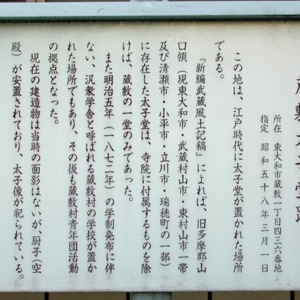 所在 東大和市蔵敷一丁目四三六番地
指定 昭和五十八年三月一日
この地は、江戸時代に太子堂が置かれた場所
である。
『新編武蔵風土記稿』によれば、旧多摩郡山
口領（現東大和市・武蔵村山市・東村山市一帯
及び清瀬市・小平市・立川市・瑞穂町の一部）
に存在した太子堂は、寺院に付属するものを除
けば、蔵敷の一堂のみであった。
また明治五年（一八七二年）の学制発布に伴
ない、汎衆学舎と呼ばれる蔵敷村の学校が置か
れた場所でもあり、その後も蔵敷村青年団活動
の拠点となった。
現在の建造物は当時の面影はないが、厨子（空
殿）が安置されており、太子像が祀られている。